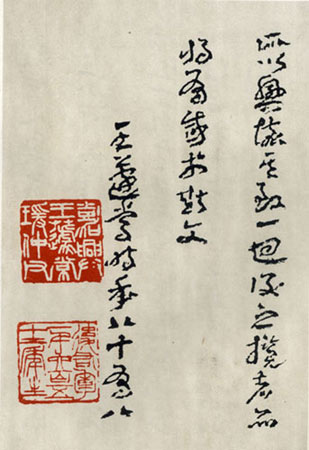 所以興懷其致一也後之攬者亦
將有感於斯文
王蘧常時年八十有八
王蘧常
瑗仲